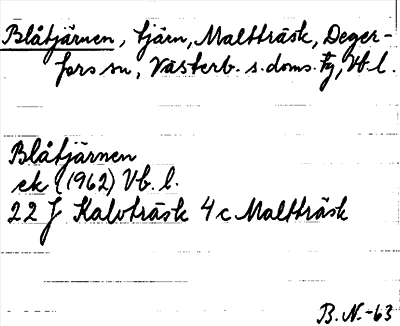 Blåtjärnen, tjärn, Maltträsk, Deger-
fors sn, Västerb. s. doms. fg, Vb. l.
Blåtjärnen
ek (1962) Vb. l.
22 J Kalvträsk 4 c Maltträsk
B. N. -63